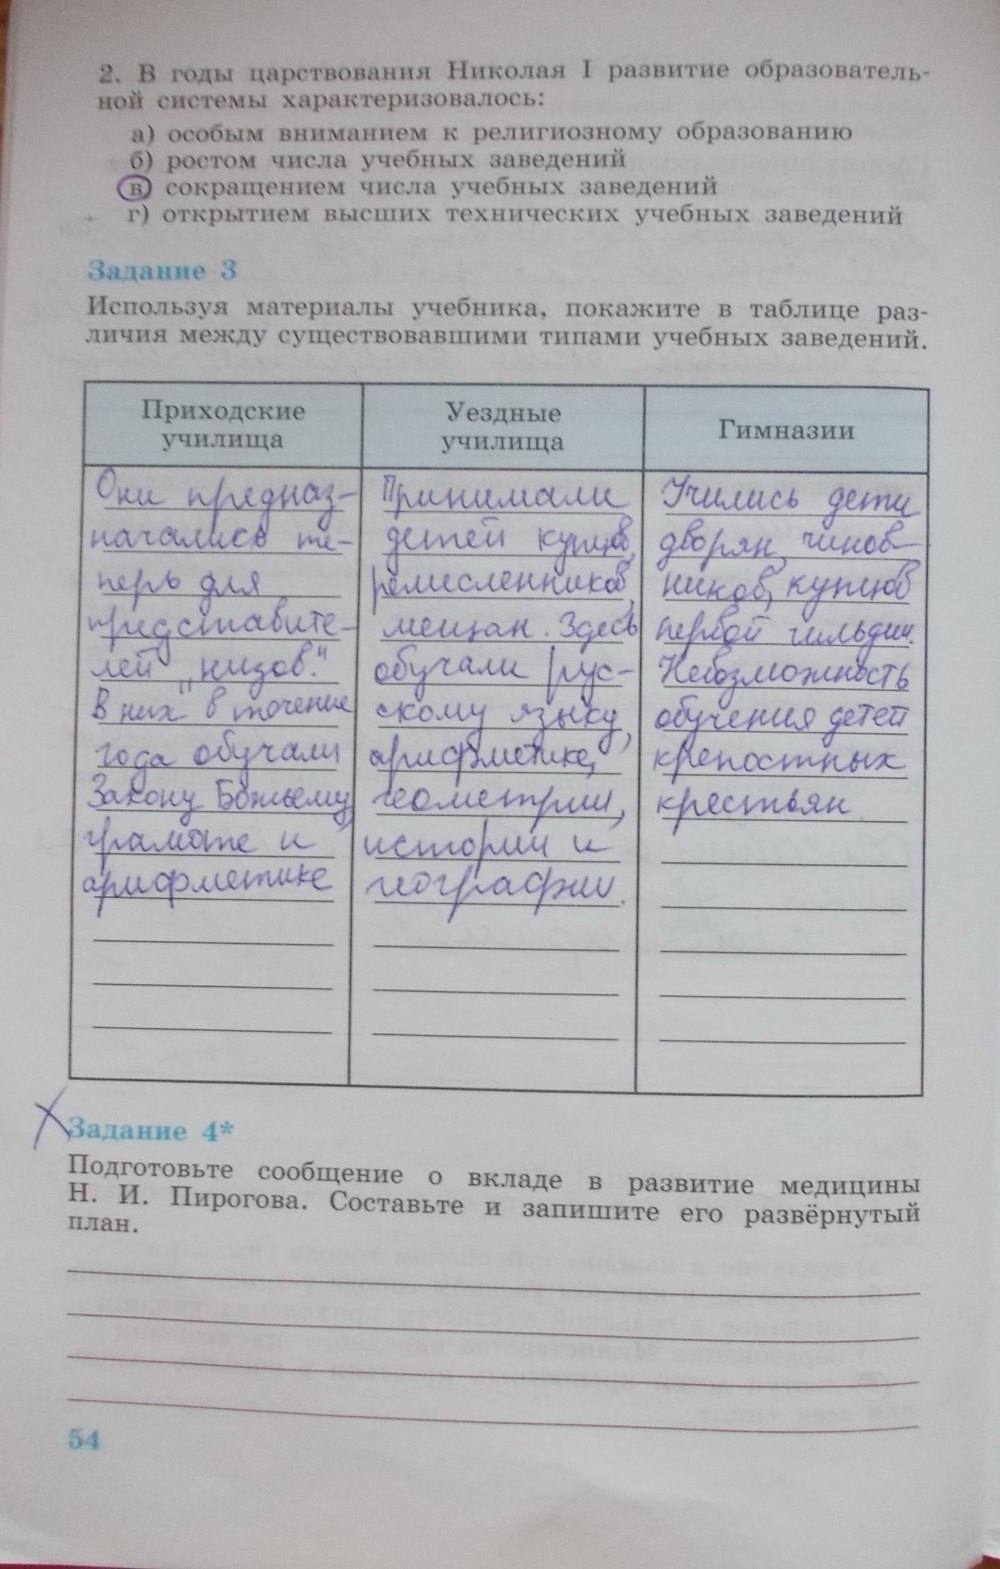 2. В годы царствования Николая I развитие образователь-
ной системы характеризовалось:
а) особым вниманием к религиозному образованию
б) ростом числа учебных заведений
в) сокращением числа учебных заведений
г) открытием высших технических учебных заведений
Задание 3
Используя материалы учебника, покажите в таблице раз-
личия между существовавшими типами учебных заведений.
Приходские
училища
Уездные
училища
Гимназии
Они предназ-
начались те-
перь для
представите-
лей "низов".
В них в течение
года обучали
Закону Божьему,
грамоте и
арифметике
Принимали
детей купцов,
ремесленников,
мещан. Здесь
обучали рус-
скому языку,
арифметике,
геометрии,
истории и
географии.
Учились дети
дворян, чинов-
ников, купцов
первой гильдии.
Невозможность
обучения детей
крепостных
крестьян.
Задание 4*
Подготовьте сообщение о вкладе в развитие медицины
Н. И. Пирогова. Составьте и запишите его развёрнутый
план.
54